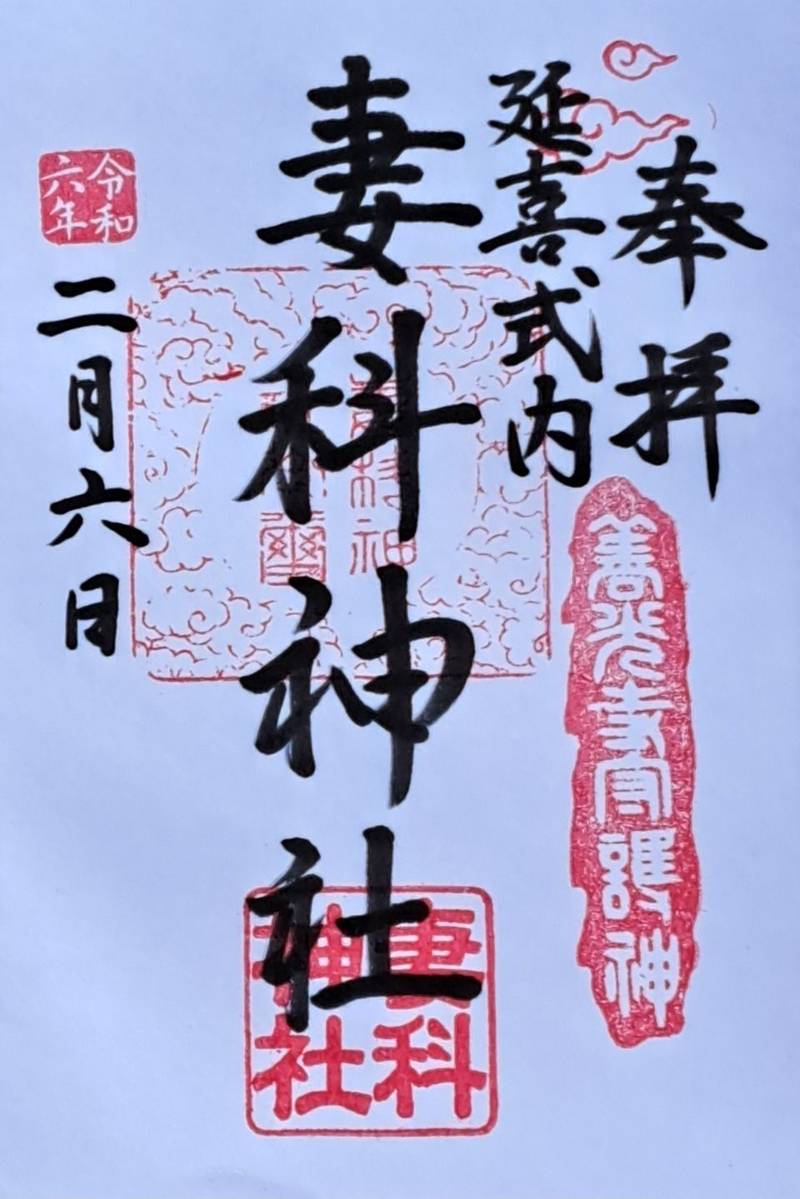 奉拝
延喜式内
善光寺守護神
妻科神社
妻科
神社
令和
六年
二月六日